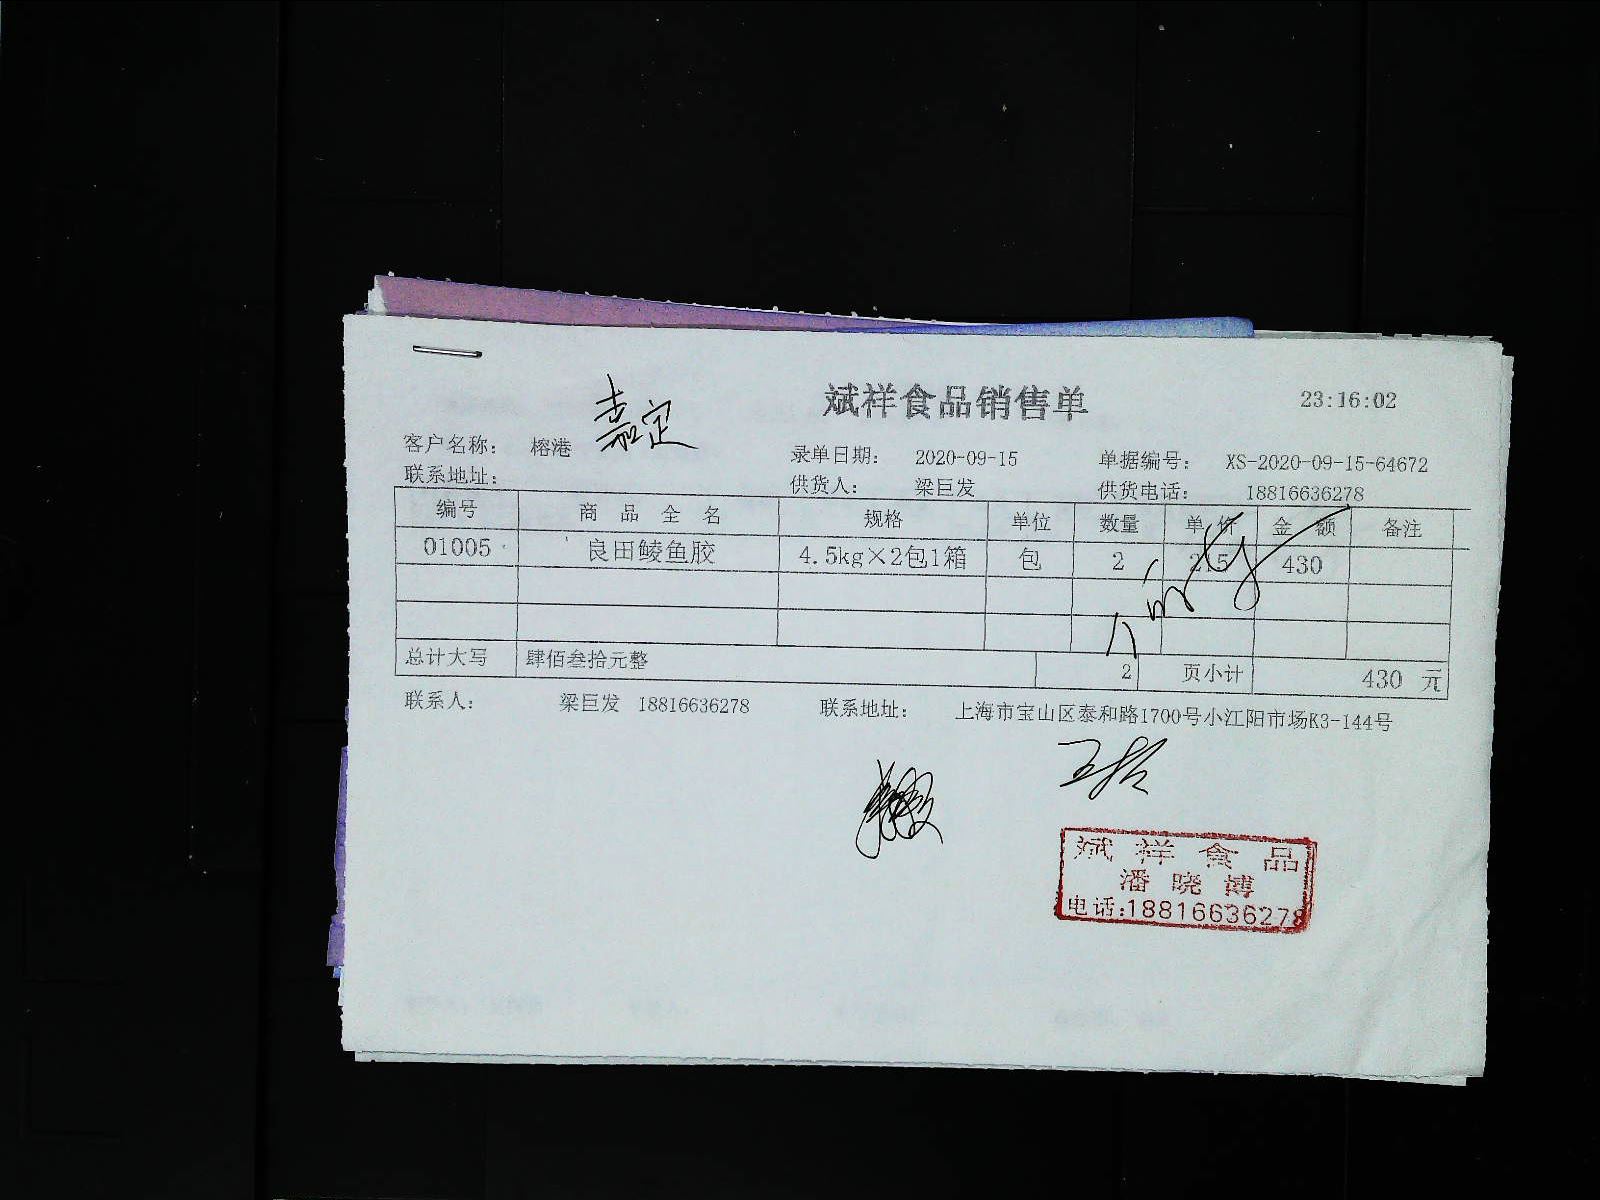 斌祥食品销售单
23:16:02
嘉定
客户名称: 榕港 录单日期: 2020-09-15 单据编号: XS-2020-09-15-64672
联系地址: 供货人: 梁巨发 供货电话: 18816636278
编号 商品全名 规格 单位 数量 单价 金额 备注
01005 良田鲮鱼胶 4.5kg×2包1箱 包 2 215 430
总计大写 肆佰叁拾元整 2 页小计 430 元
联系人: 梁巨发 18816636278 联系地址: 上海市宝山区泰和路1700号小江阳市场K3-144号
斌祥食品
潘晓博
电话:18816636278